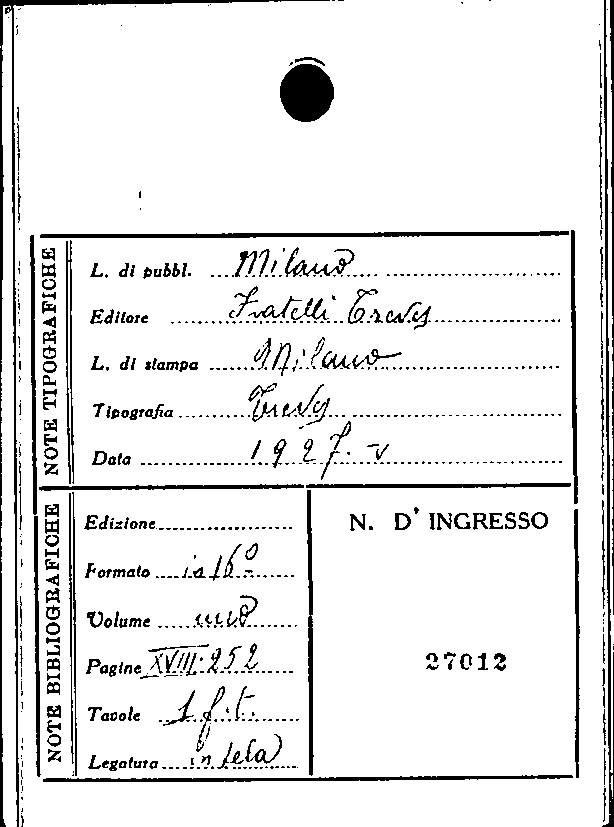 NOTE TIPOGRAFICHE
L. di pubbl. Milano
Editore Fratelli Treves
L. di stampa Milano
Tipografia Treves
Data 1927. V
NOTE BIBLIOGRAFICHE
Edizione
Formato in 16º
Volume uno
Pagine XVIII-252
Tavole 1 f.t.
Legatura in tela
N. D' INGRESSO
27012